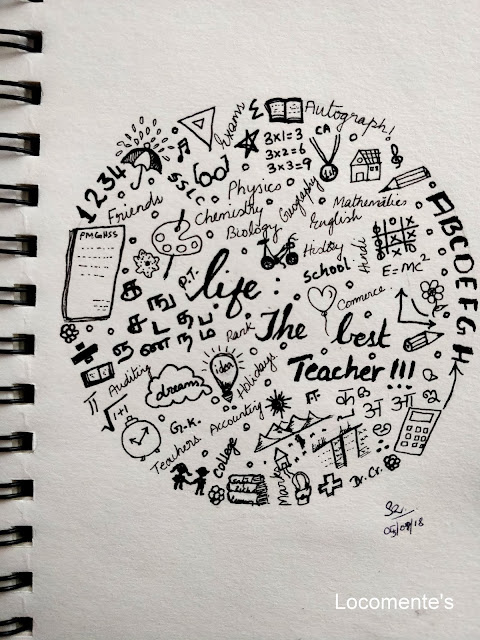 Exams
Autograph!
3x1=3
3x2=6
3x3=9
CA
1st
1 2 3 4
SSLC
Friends
Physics
Chemistry
Biology
Geography
Mathematics
English
History
Hindi
school
E=MC²
ABCDEFGH
PMGHSS
P.T.
life :
The best
Teacher!!!
Commerce
Rank
Holidays
idea
dream
Auditing
π
√1+1
G.K.
Accounting
Teachers
College
Marks
अ आ
Dr. Cr.
05/09/18
Locomente's